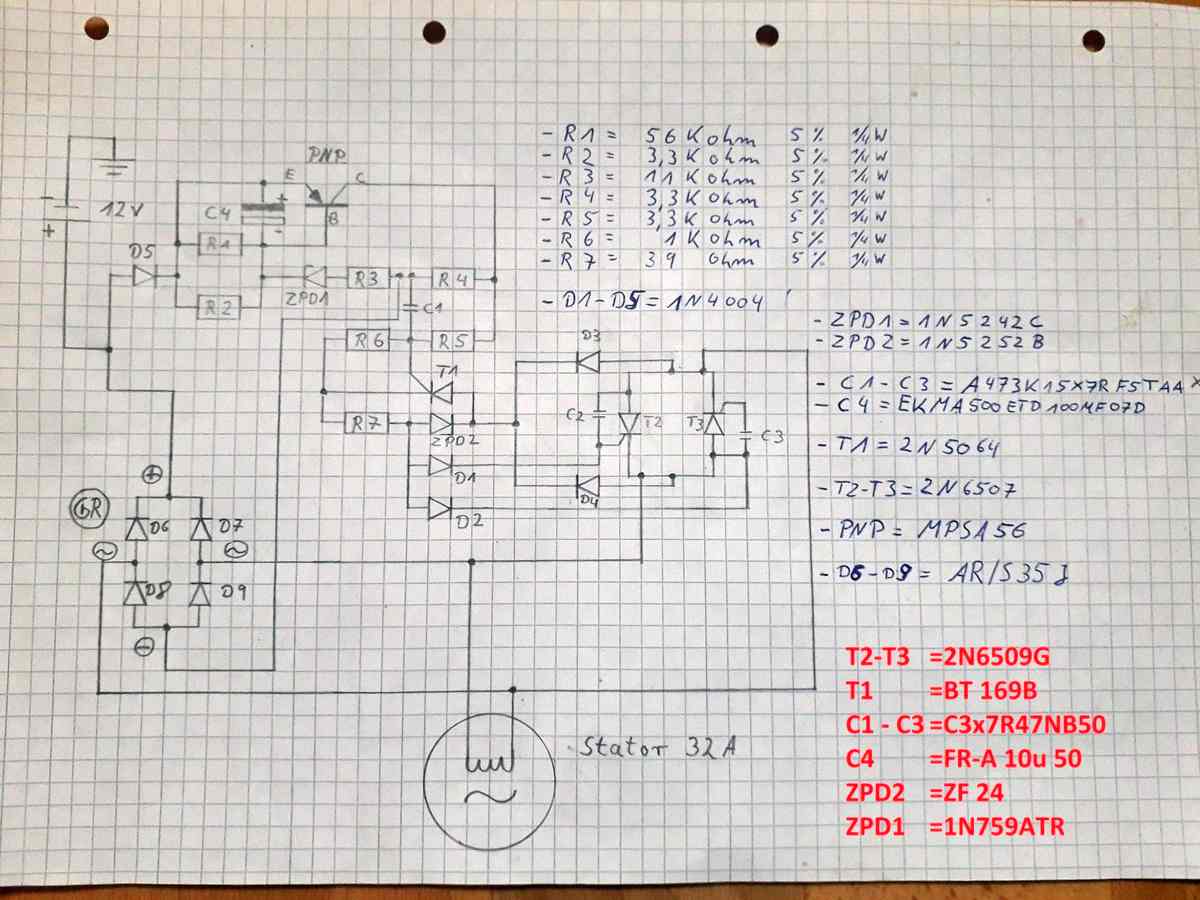 - R1 = 56 K Ohm 5% 1/4 W
- R2 = 3,3 K Ohm 5% 1/4 W
- R3 = 11 K Ohm 5% 1/4 W
- R4 = 3,3 K Ohm 5% 1/4 W
- R5 = 3,3 K Ohm 5% 1/4 W
- R6 = 1 K Ohm 5% 1/4 W
- R7 = 39 Ohm 5% 1/4 W
- D1-D5 = 1N4004
- ZPD1 = 1N5242C
- ZPD2 = 1N5252B
- C1-C3 = A473K15X7RF5TAA X
- C4 = EKMA500ETD100MF07D
- T1 = 2N5064
- T2-T3 = 2N6507
- PNP = MPSA56
- D6-D9 = AR/S35J
T2-T3 =2N6509G
T1 =BT 169B
C1 - C3 =C3x7R47NB50
C4 =FR-A 10u 50
ZPD2 =ZF 24
ZPD1 =1N759ATR
PNP
E C
- +
C4
12V
B
+ -
R1
D5
R3 R4
ZPD1
R2 C1
R6 R5
D3
T1
C2 T2 T3
R7
ZPD2 C3
D1
+
D4
GR
D2
D6 D7
~ ~
D8 D9
-
Stator 32A
~